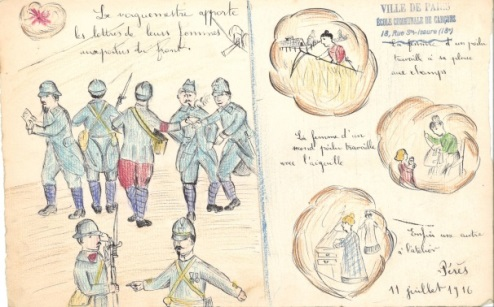 Le vaguemestre apporte
les lettres de leurs femmes
aux poilus du front.
VILLE DE PARIS
ÉCOLE COMMUNALE DE GARÇONS
18, Rue Ste-Isaure (18e)
La femme d'un poilu
travaille à sa place
aux champs
La femme d'un
second poilu travaille
avec l'aiguille
Enfin une autre
à l'atelier
Pérès
11 juillet 1916